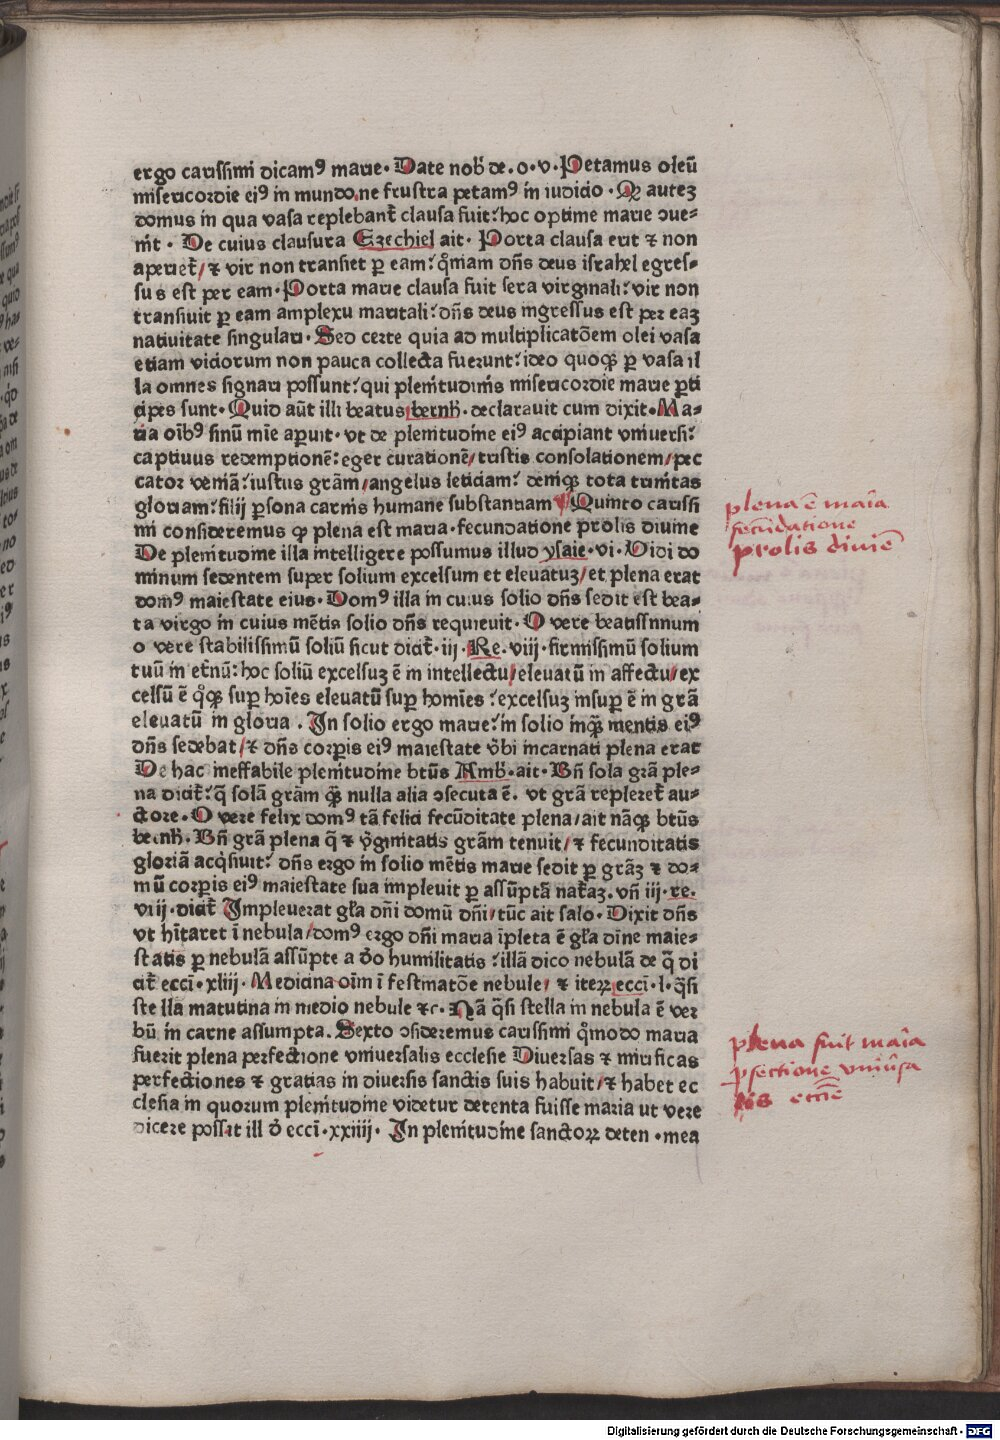 ergo carissimi dicamꝰ marie. Date nob̄ de. o. v. Petamus oleū
misericordie eiꝰ in mundo, ne frustra petamꝰ in iudicio. Qꝛ autez
domus in qua vasa replebant̄ clausa fuit: hoc optime marie ꝯue-
nīt. De cuius clausura Ezechiel ait. Porta clausa erit ⁊ non
aperiet̄/ ⁊ vir non transiet ꝑ eam: qm̄iam dn̄s deus israhel egres-
sus est per eam. Porta marie clausa fuit sera virginali: vir non
transiuit ꝑ eam amplexu maritali: dn̄s deus ingressus est per eaꝫ
natiuitate singulari. Sed certe quia ad multiplicatōem olei vasa
etiam viciorum non pauca collecta fuerunt: ideo quoqꝫ ꝑ vasa il
la omnes signari possunt: qui plenitudinis misericordie marie ꝑti
cipes sunt. Quid aūt illi beatus bernh̄. declarauit cum dixit. Ma-
ria oīb9 sinū mīe aꝑuit. vt de plenitudine eiꝰ accipiant vniuersi:
captiuus redemptionē: eger curationē/ tristis consolationem/ pec
cator veniā: iustus grām/ angelus leticiam: deniqꝫ tota trinitas
gloriam: filij ꝑsona carnis humane substantiam ¶ Quinto carissi
mi consideremus ꝙ plena est maria. fecundatione prolis diuine
De plenitudine illa intelligere possumus illud ysaie. vi. Vidi do
minum sedentem super solium excelsum et eleuatuꝫ/ et plena erat
domꝰ maiestate eius. Domꝰ illa in cuius solio dn̄s sedit est bea-
ta virgo in cuius mētis solio dn̄s requieuit. O vere beatissimum
o vere stabilissimū soliū sicut dicit̄. iij. Re. viij. firmissimū solium
tuū in et̄nū: hoc soliū excelsuꝫ ē in intellectu/ eleuatū in affectu/ ex
celsū ē qͦqꝫ suꝑ hoīes eleuatū suꝑ homies: excelsuꝫ insuꝑ ē in grā
eleuatū in gloria. In solio ergo marie: in solio inqꝫ mentis eiꝰ
dn̄s sedebat/ ⁊ dn̄s corꝑis eiꝰ maiestate v̄bi incarnati plena erat
De hac ineffabile plenitudine btūs Amb̄. ait. Bn̄ sola grā ple-
na dicit̄: q̄ solā grām qꝫ nulla alia ꝯsecuta ē. vt grā repleret̄ au-
ctore. O vere felix domꝰ tā felici fecūditate plena/ ait nāqꝫ btūs
bernh̄. Bn̄ grā plena q̄ ⁊ v̄ginitatis grām tenuit/ ⁊ fecunditatis
gloriā acq̄siuit: dn̄s ergo in solio mētis marie sedit ꝑ grāꝫ ⁊ do-
mū corꝑis eiꝰ maiestate sua impleuit ꝑ assūptā nat̄aꝫ. vn̄ iij. re.
viij. dicit̄ Impleuerat gl̄a dn̄i domū dn̄i/ tūc ait salo. Dixit dn̄s
vt hītaret ī nebula/ domꝰ ergo dn̄i maria īpleta ē gl̄a dīne maie-
statis ꝑ nebulā assūpte a d̄o humilitatis: illā dico nebulā de q̄ di
cit̄ eccī. xliij. Medicina oīm ī festinatōe nebule/ ⁊ iteꝝ eccī. l. q̄si
stella matutina in medio nebule ⁊c. Nā q̄si stella in nebula ē ver
bū in carne assumpta. Sexto ꝯsideremus carissimi qͦmodo maria
fuerit plena perfectione vniuersalis ecclesie Diuersas ⁊ mirificas
perfectiones ⁊ gratias in diuersis sanctis suis habuit/ ⁊ habet ec
clesia in quorum plenitudine videtur detenta fuisse maria ut vere
dicere possit ill d̄ eccī. xxiiij. In plenitudine sanctoꝝ deten. mea
plena ē maīa
fecūdatione
prolis diuiē
plena fuit maīa
ꝑfectione vniūsa
lis eccīē
Digitalisierung gefördert durch die Deutsche Forschungsgemeinschaft - DFG